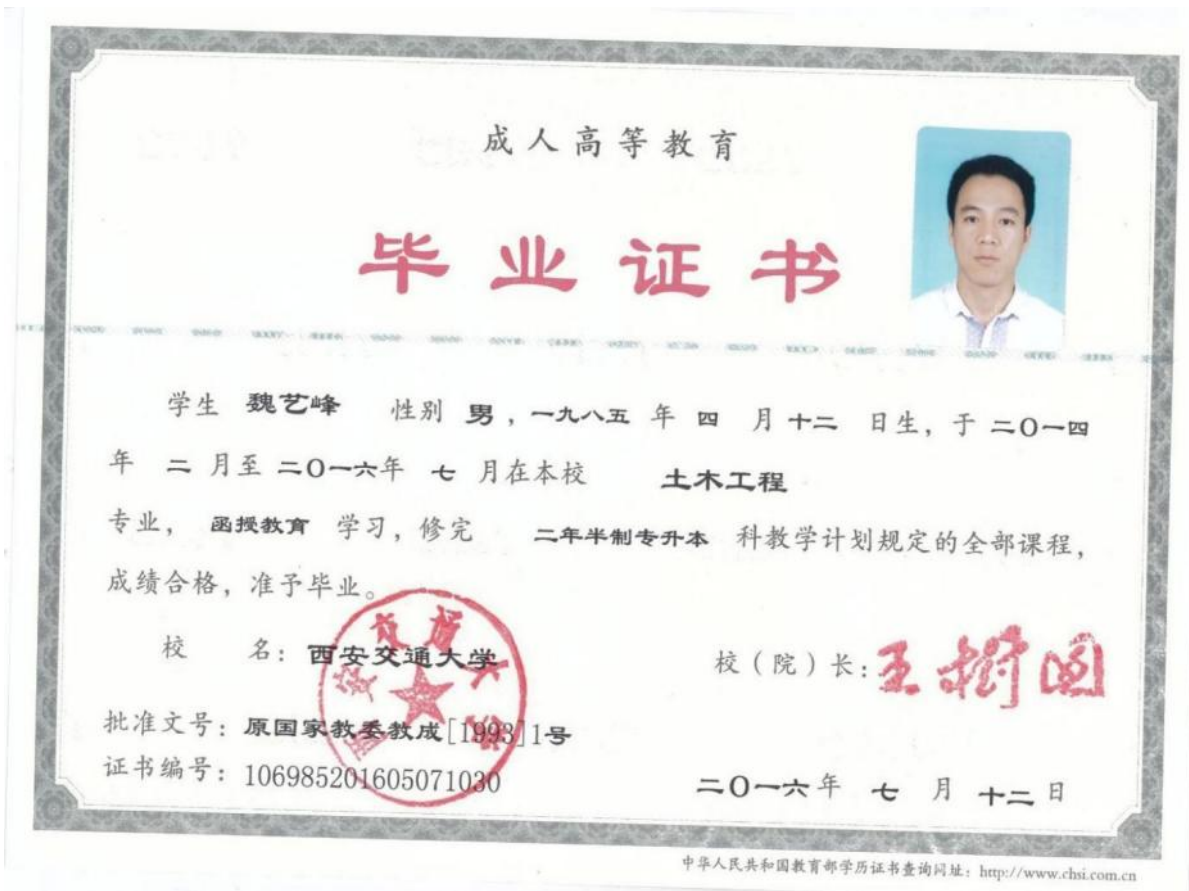 成人高等教育
毕业证书
学生 魏艺峰 性别 男，一九八五 年 四 月 十二 日生，于 二〇一四
年 二 月至 二〇一六年 七 月在本校 土木工程
专业， 函授教育 学习，修完 二年半制专升本 科教学计划规定的全部课程，
成绩合格，准予毕业。
校 名：西安交通大学
校（院）长：王树国
西安交通大学
批准文号：原国家教委教成[1993]1号
证书编号：106985201605071030
二〇一六年 七 月 十二 日
中华人民共和国教育部学历证书查询网址：http://www.chsi.com.cn